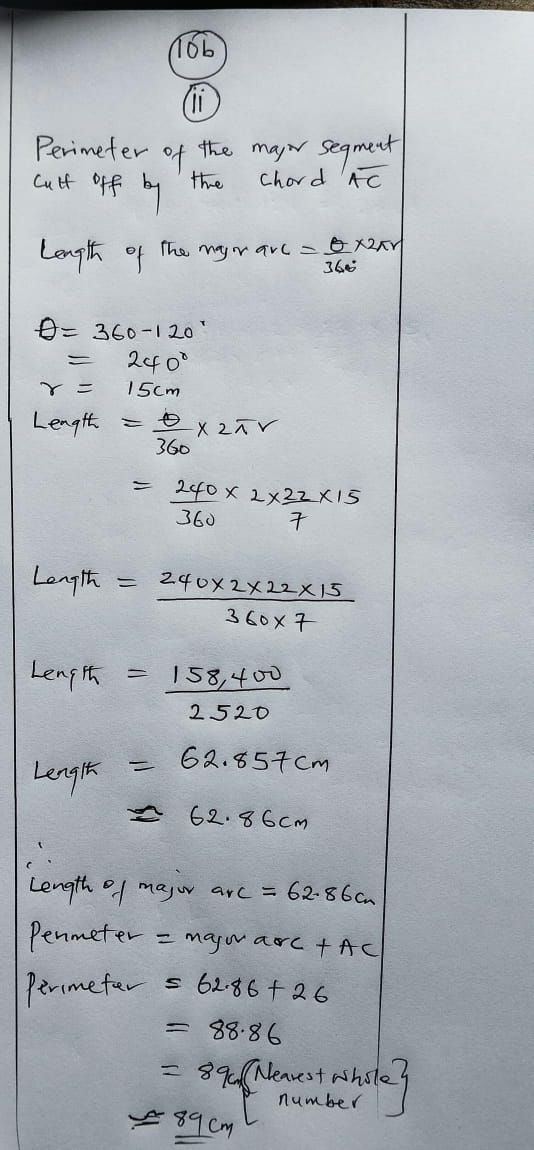 10b
ii
Perimeter of the major segment
Cutt off by the chord AC
Length of the major arc = θ/360° × 2πr
θ = 360 - 120°
= 240°
r = 15cm
Length = θ/360 × 2πr
= 240/360 × 2 × 22/7 × 15
Length = 240×2×22×15 / 360×7
Length = 158,400 / 2520
Length = 62.857cm
≃ 62.86cm
∴
Length of major arc = 62.86cm
Perimeter = major arc + AC
Perimeter = 62.86 + 26
= 88.86
= 89cm {Nearest whole number}
≃ 89cm